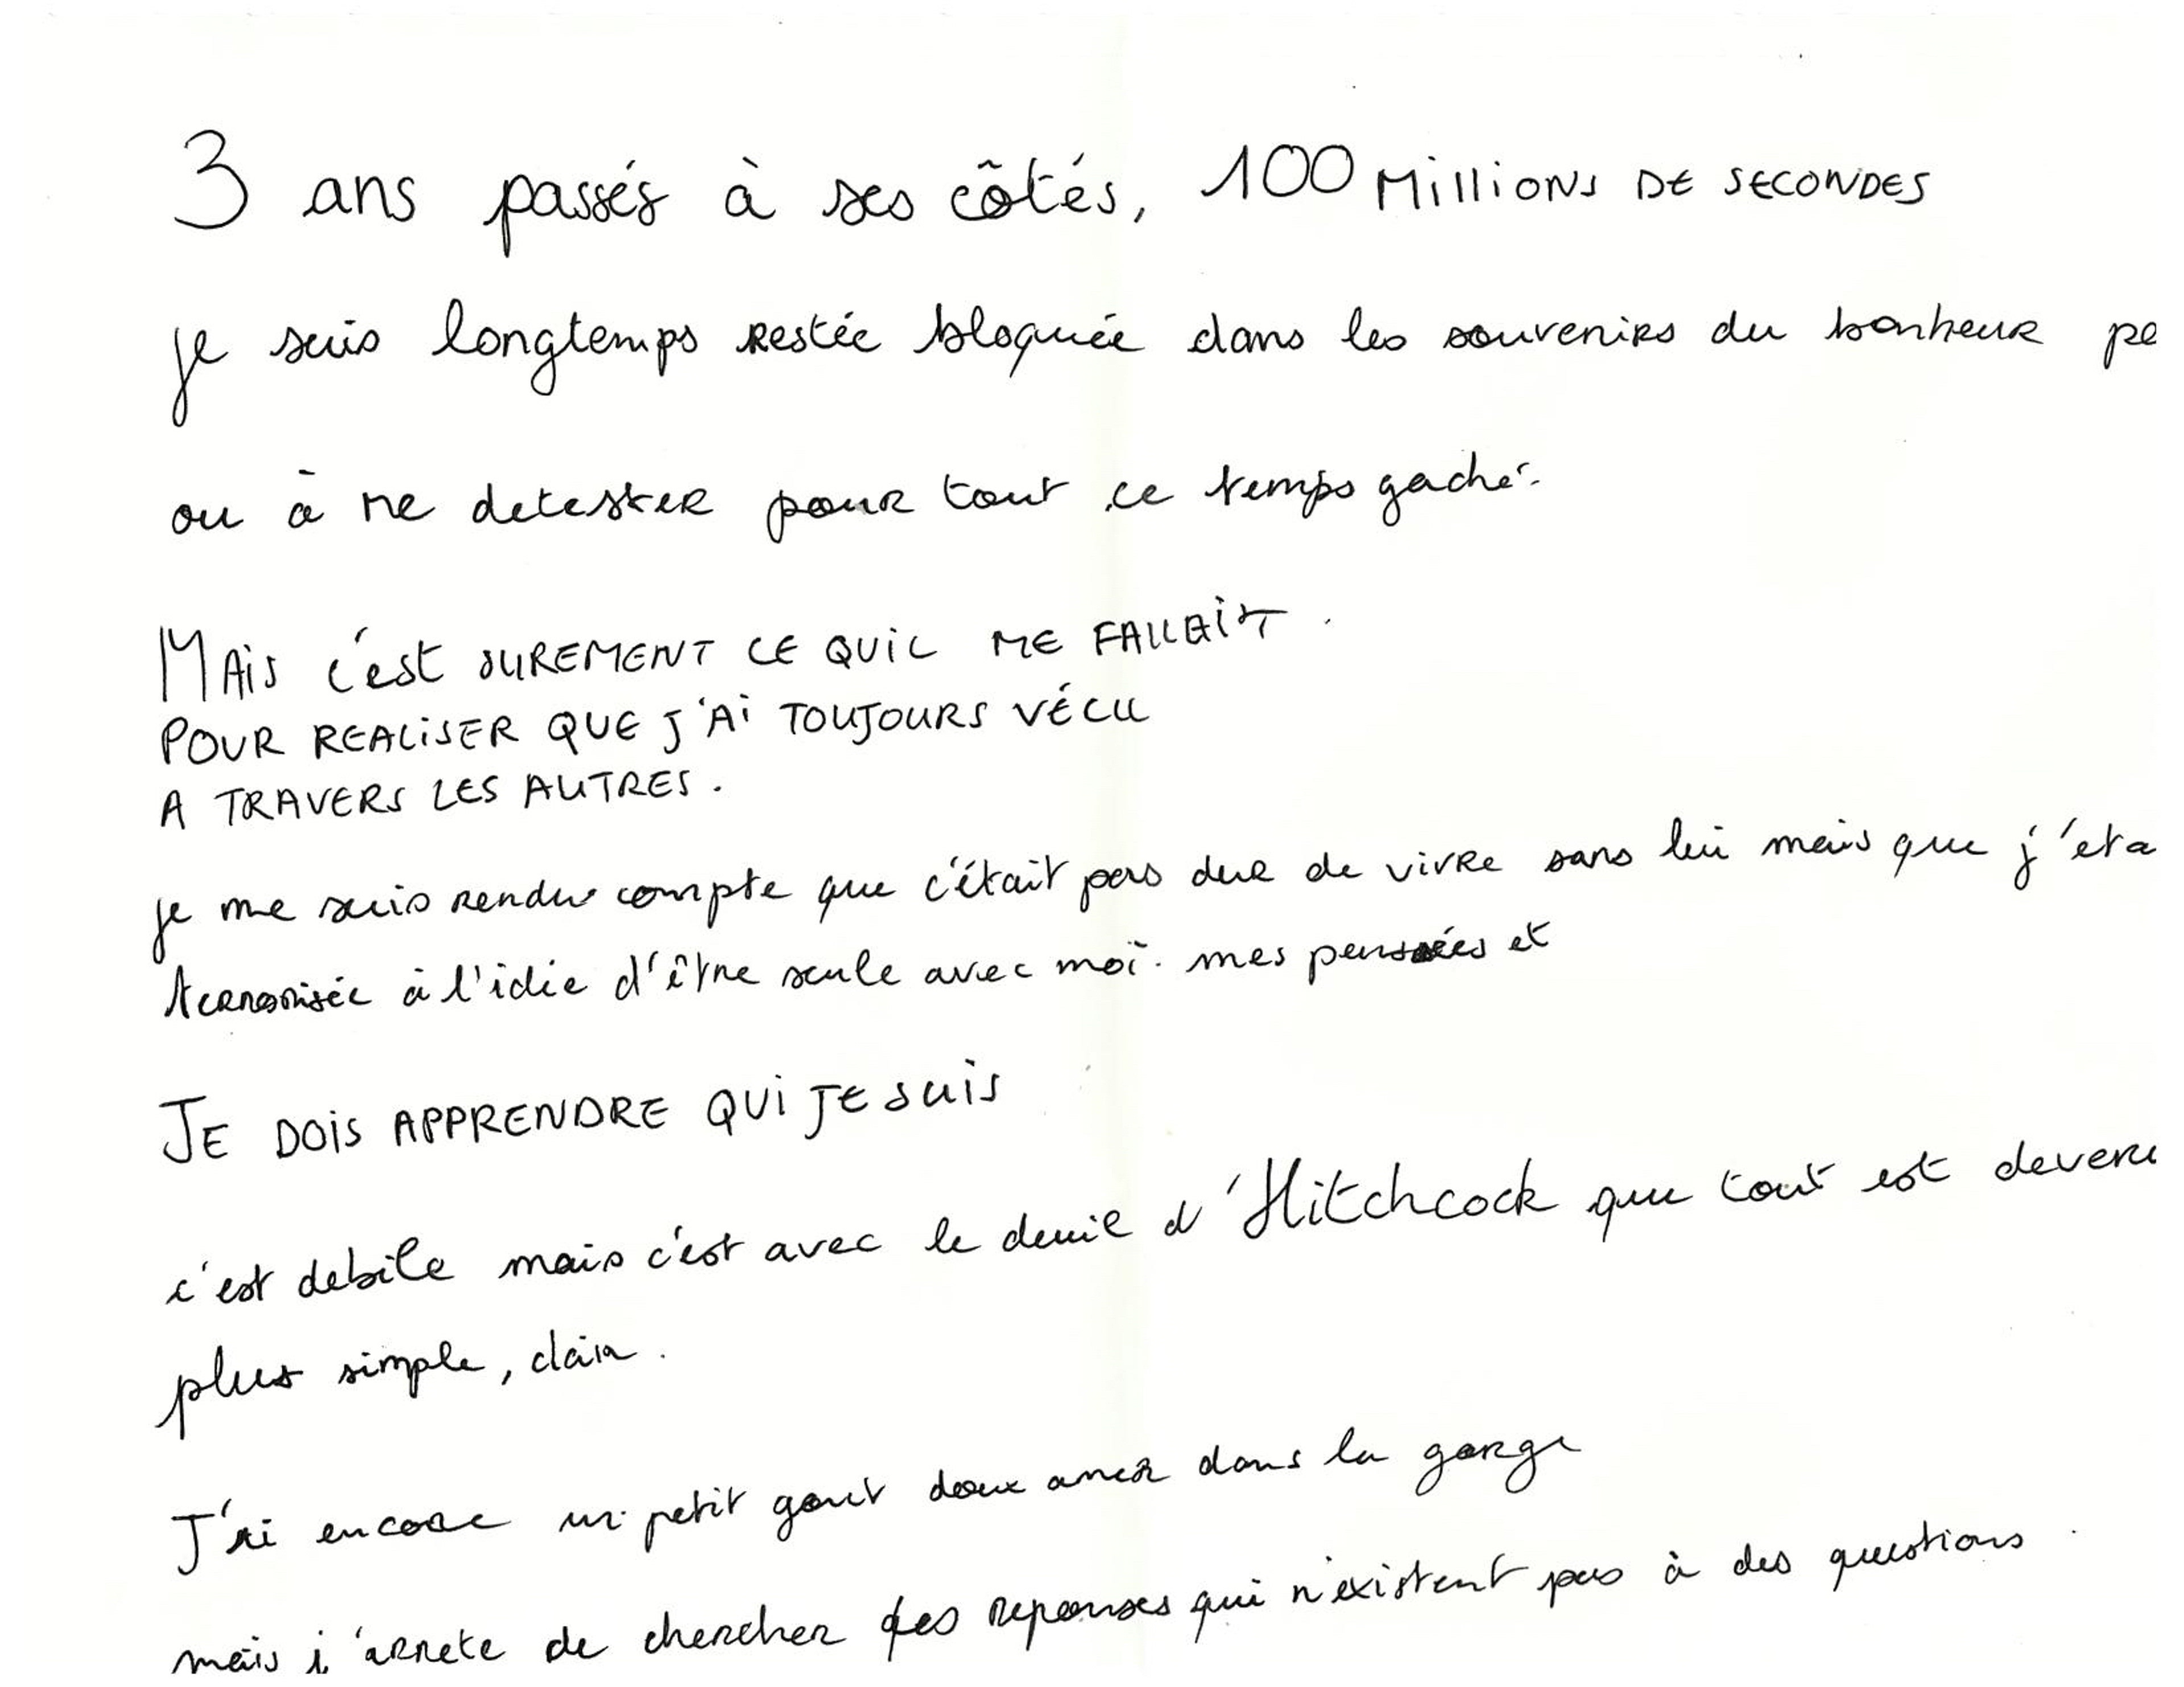 3 ans passés à ses côtés, 100 MilliONS DE SECONDES
je suis longtemps restée bloquée dans les souvenirs du bonheur pe
ou à me detester pour tout ce temps gaché.
MAiS c'est SUREMENT CE QUiL ME FALLAiT.
POUR REALiSER QUE J'Ai TOUJOURS VÉCU
A TRAVERS LES AUTRES.
je me suis rendu compte que c'était pas dur de vivre sans lui mais que j'eta
à l'idée d'être seule avec moi. mes pensées et
JE DOiS APPRENDRE QUi JE SUiS
c'est debile mais c'est avec le deuil d'Hitchcock que tout est devenu
plus simple, clair.
J'ai encore un petit gout doux amer dans la gorge
mais j'arrete de chercher des reponses qui n'existent pas à des questions.